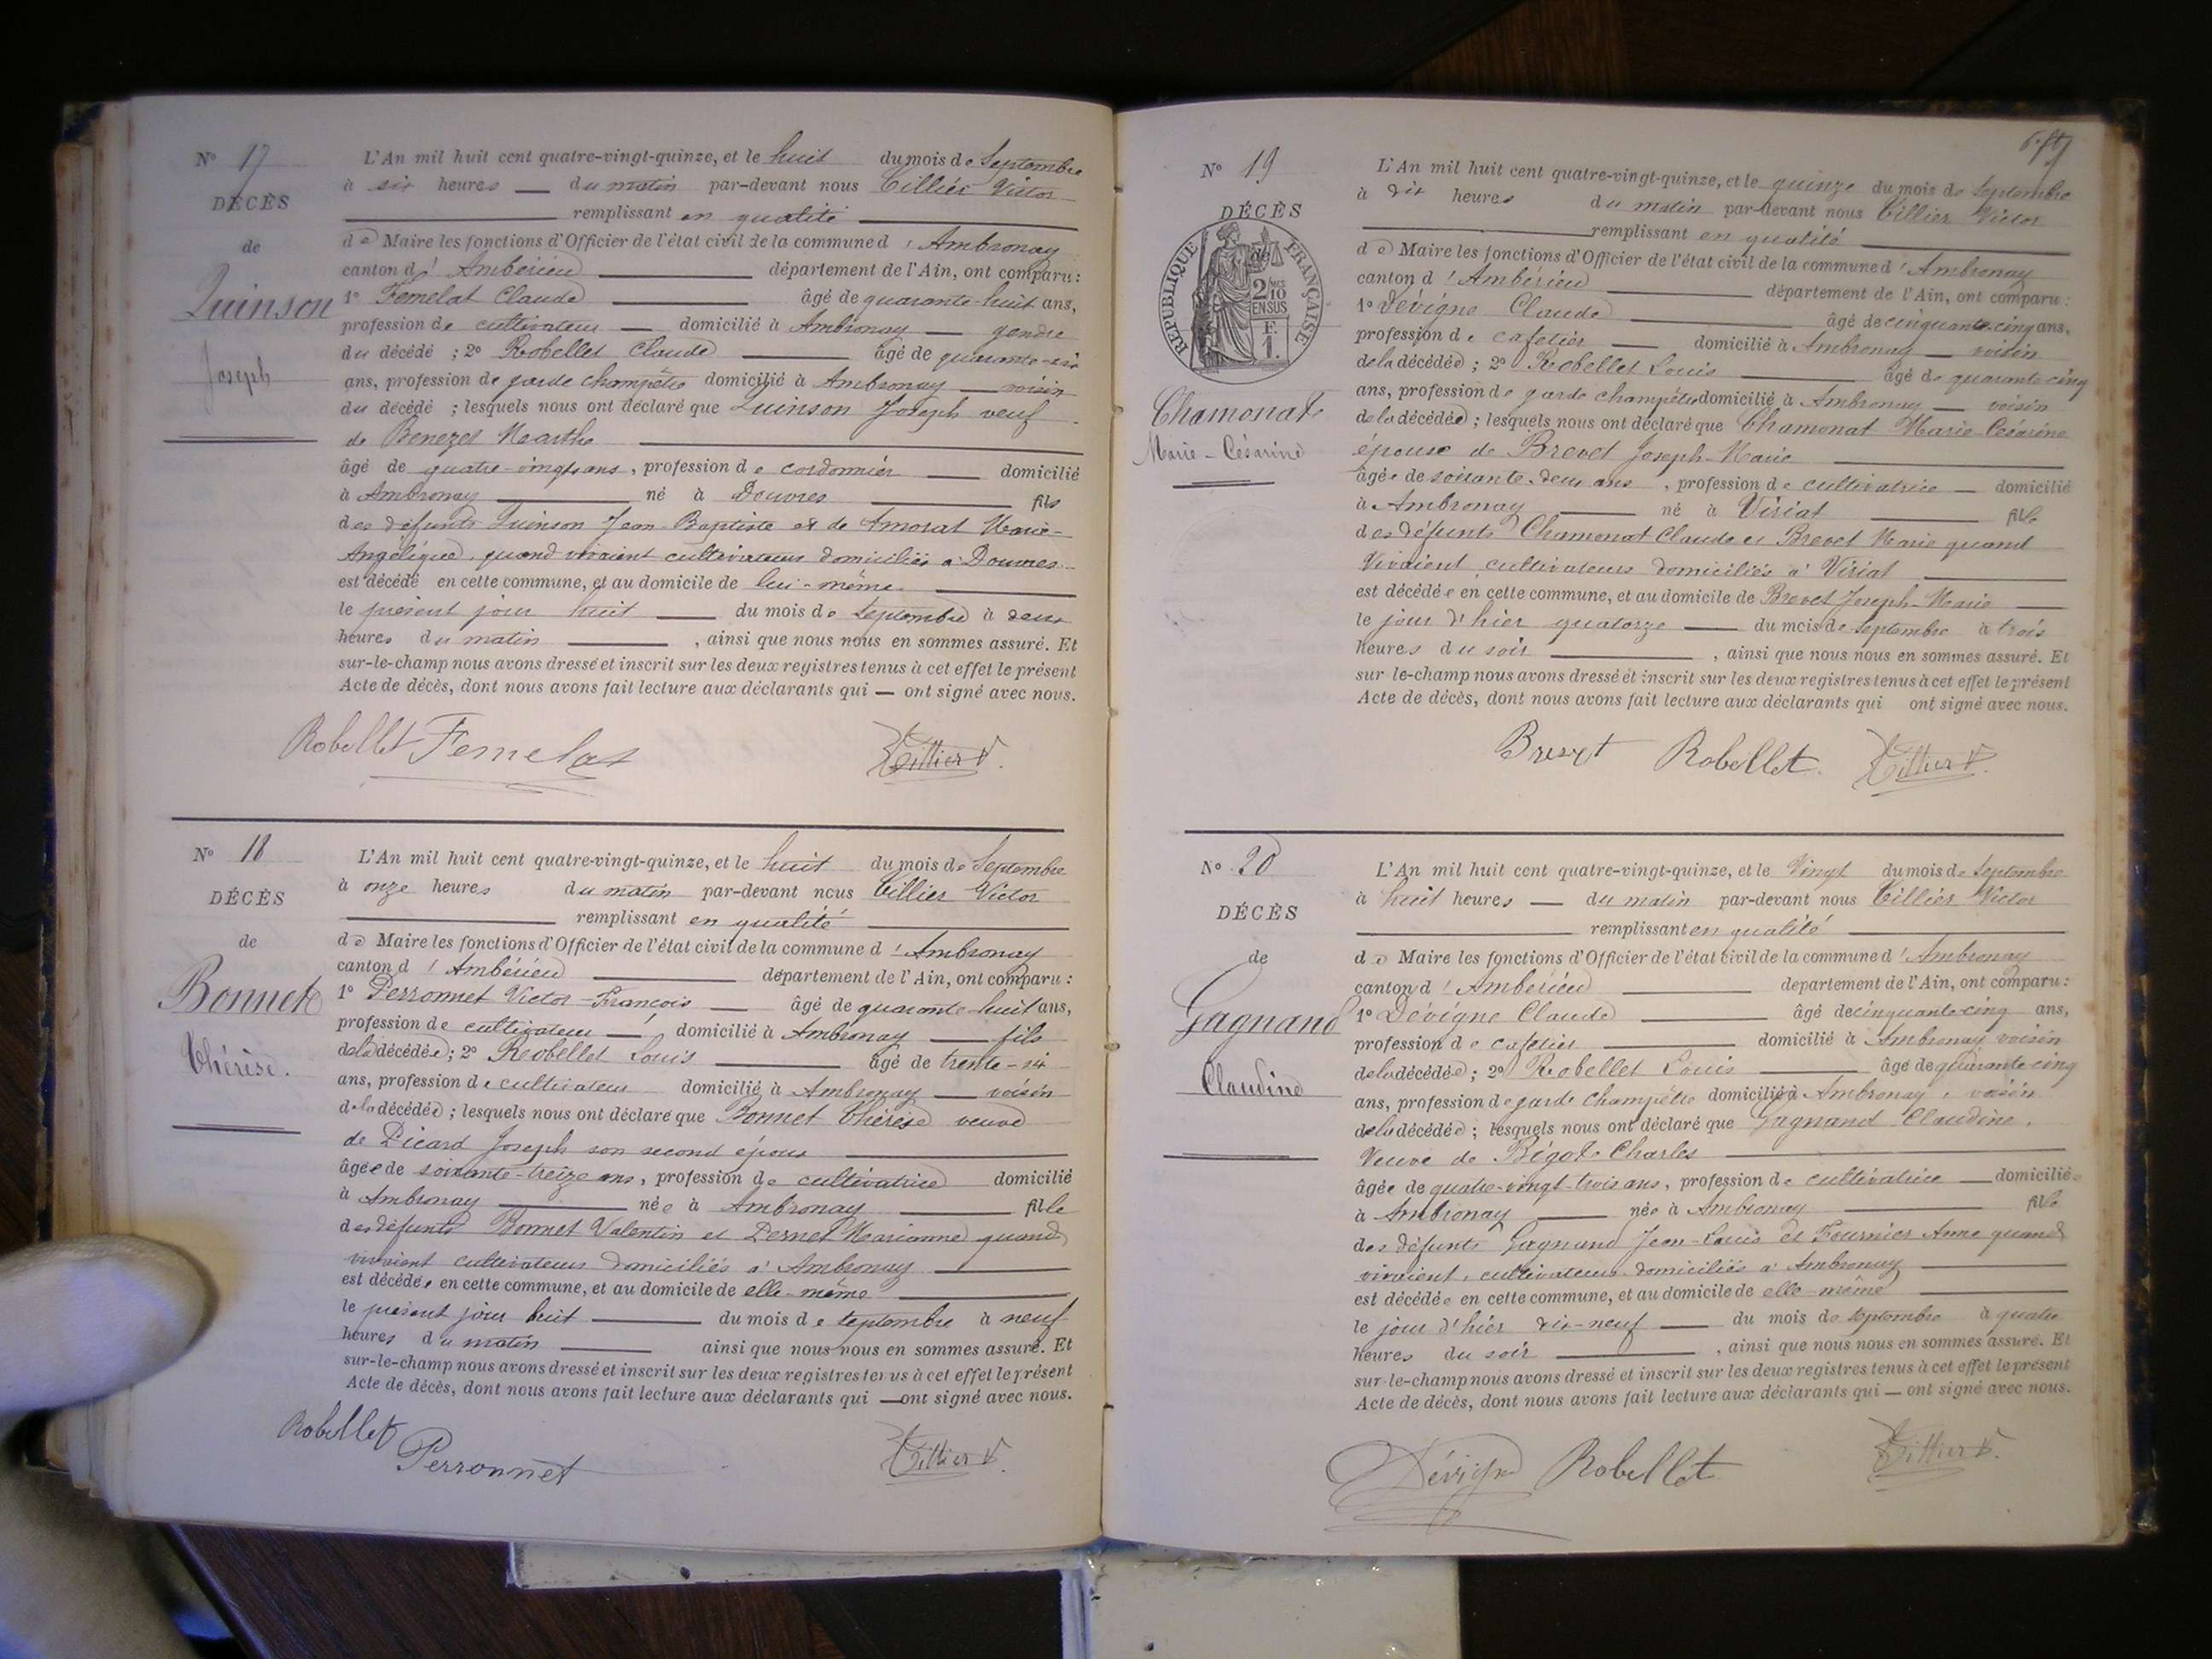 N° 17
DÉCÈS
de
Quinson
Joseph
L'An mil huit cent quatre-vingt-quinze, et le huit du mois de Septembre
à six heures du matin par-devant nous Tillier Victor
remplissant en qualité
de Maire les fonctions d'Officier de l'état civil de la commune d'Ambronay
canton d'Ambérieu département de l'Ain, ont comparu :
1° Femelat Claude âgé de quarante-huit ans,
profession de cultivateur domicilié à Ambronay gendre
du décédé ; 2° Robellet Claude âgé de quarante-six
ans, profession de garde champêtre domicilié à Ambronay voisin
du décédé ; lesquels nous ont déclaré que Quinson Joseph veuf
de Benezet Marthe
âgé de quatre-vingts ans, profession de cordonnier domicilié
à Ambronay né à Douvres fils
des défunts Quinson Jean-Baptiste et de Amorat Marie-
Angélique, quand vivaient cultivateurs domiciliés à Douvres
est décédé en cette commune, et au domicile de lui-même
le présent jour huit du mois de septembre à deux
heures du matin, ainsi que nous nous en sommes assuré. Et
sur-le-champ nous avons dressé et inscrit sur les deux registres tenus à cet effet le présent
Acte de décès, dont nous avons fait lecture aux déclarants qui — ont signé avec nous.
Robellet Femelat Tillier V.
N° 18
DÉCÈS
de
Bonnet
Thérèse.
L'An mil huit cent quatre-vingt-quinze, et le huit du mois de Septembre
à onze heures du matin par-devant nous Tillier Victor
remplissant en qualité
de Maire les fonctions d'Officier de l'état civil de la commune d'Ambronay
canton d'Ambérieu département de l'Ain, ont comparu :
1° Perronnet Victor-François âgé de quarante-huit ans,
profession de cultivateur, domicilié à Ambronay fils
de la décédée ; 2° Robellet Louis âgé de trente-six
ans, profession de cultivateur domicilié à Ambronay voisin
de la décédée ; lesquels nous ont déclaré que Bonnet Thérèse veuve
de Picard Joseph son second époux
âgée de soixante-treize ans, profession de cultivatrice domicilié
à Ambronay née à Ambronay fille
des défunts Bonnet Valentin et Pernet Marianne quand
vivaient cultivateurs domiciliés à Ambronay
est décédée en cette commune, et au domicile de elle-même
le présent jour huit du mois de septembre à neuf
heures du matin ainsi que nous nous en sommes assuré. Et
sur-le-champ nous avons dressé et inscrit sur les deux registres tenus à cet effet le présent
Acte de décès, dont nous avons fait lecture aux déclarants qui — ont signé avec nous.
Robellet Perronnet Tillier V.
N° 19
DÉCÈS
de
RÉPUBLIQUE FRANÇAISE
2/10 EN SUS
F. 1.
Chamonat
Marie-Césarine
L'An mil huit cent quatre-vingt-quinze, et le quinze du mois de Septembre
à dix heures du matin par-devant nous Tillier Victor
remplissant en qualité
de Maire les fonctions d'Officier de l'état civil de la commune d'Ambronay
canton d'Ambérieu département de l'Ain, ont comparu :
1° Dévigne Claude âgé de cinquante-cinq ans,
profession de cafetier domicilié à Ambronay voisin
de la décédée ; 2° Robellet Louis âgé de quarante cinq
ans, profession de garde champêtre domicilié à Ambronay voisin
de la décédée ; lesquels nous ont déclaré que Chamonat Marie-Césarine
épouse de Brevet Joseph-Marie
âgée de soixante-deux ans, profession de cultivatrice domicilié
à Ambronay né à Viriat fille
des défunts Chamonat Claude et Brevet Marie quand
vivaient cultivateurs domiciliés à Viriat
est décédée en cette commune, et au domicile de Brevet Joseph-Marie
le jour d'hier quatorze du mois de Septembre à trois
heures du soir, ainsi que nous nous en sommes assuré. Et
sur-le-champ nous avons dressé et inscrit sur les deux registres tenus à cet effet le présent
Acte de décès, dont nous avons fait lecture aux déclarants qui ont signé avec nous.
Brevet Robellet Tillier V.
N° 20
DÉCÈS
de
Gagnand
Claudine
L'An mil huit cent quatre-vingt-quinze, et le Vingt du mois de Septembre
à huit heures du matin par-devant nous Tillier Victor
remplissant en qualité
de Maire les fonctions d'Officier de l'état civil de la commune d'Ambronay
canton d'Ambérieu département de l'Ain, ont comparu :
1° Dévigne Claude âgé de cinquante cinq ans,
profession de cafetier domicilié à Ambronay voisin
de la décédée ; 2° Robellet Louis âgé de quarante cinq
ans, profession de garde champêtre domicilié à Ambronay, voisin
de la décédée ; lesquels nous ont déclaré que Gagnand Claudine,
Veuve de Bigot Charles
âgée de quatre-vingt-trois ans, profession de cultivatrice domiciliée
à Ambronay née à Ambronay fille
des défunts Gagnand Jean-Louis et Fournier Anne quand
vivaient, cultivateurs domiciliés à Ambronay
est décédée en cette commune, et au domicile de elle-même
le jour d'hier dix-neuf du mois de septembre à quatre
heures du soir, ainsi que nous nous en sommes assuré. Et
sur-le-champ nous avons dressé et inscrit sur les deux registres tenus à cet effet le présent
Acte de décès, dont nous avons fait lecture aux déclarants qui — ont signé avec nous.
Dévigne Robellet Tillier V.